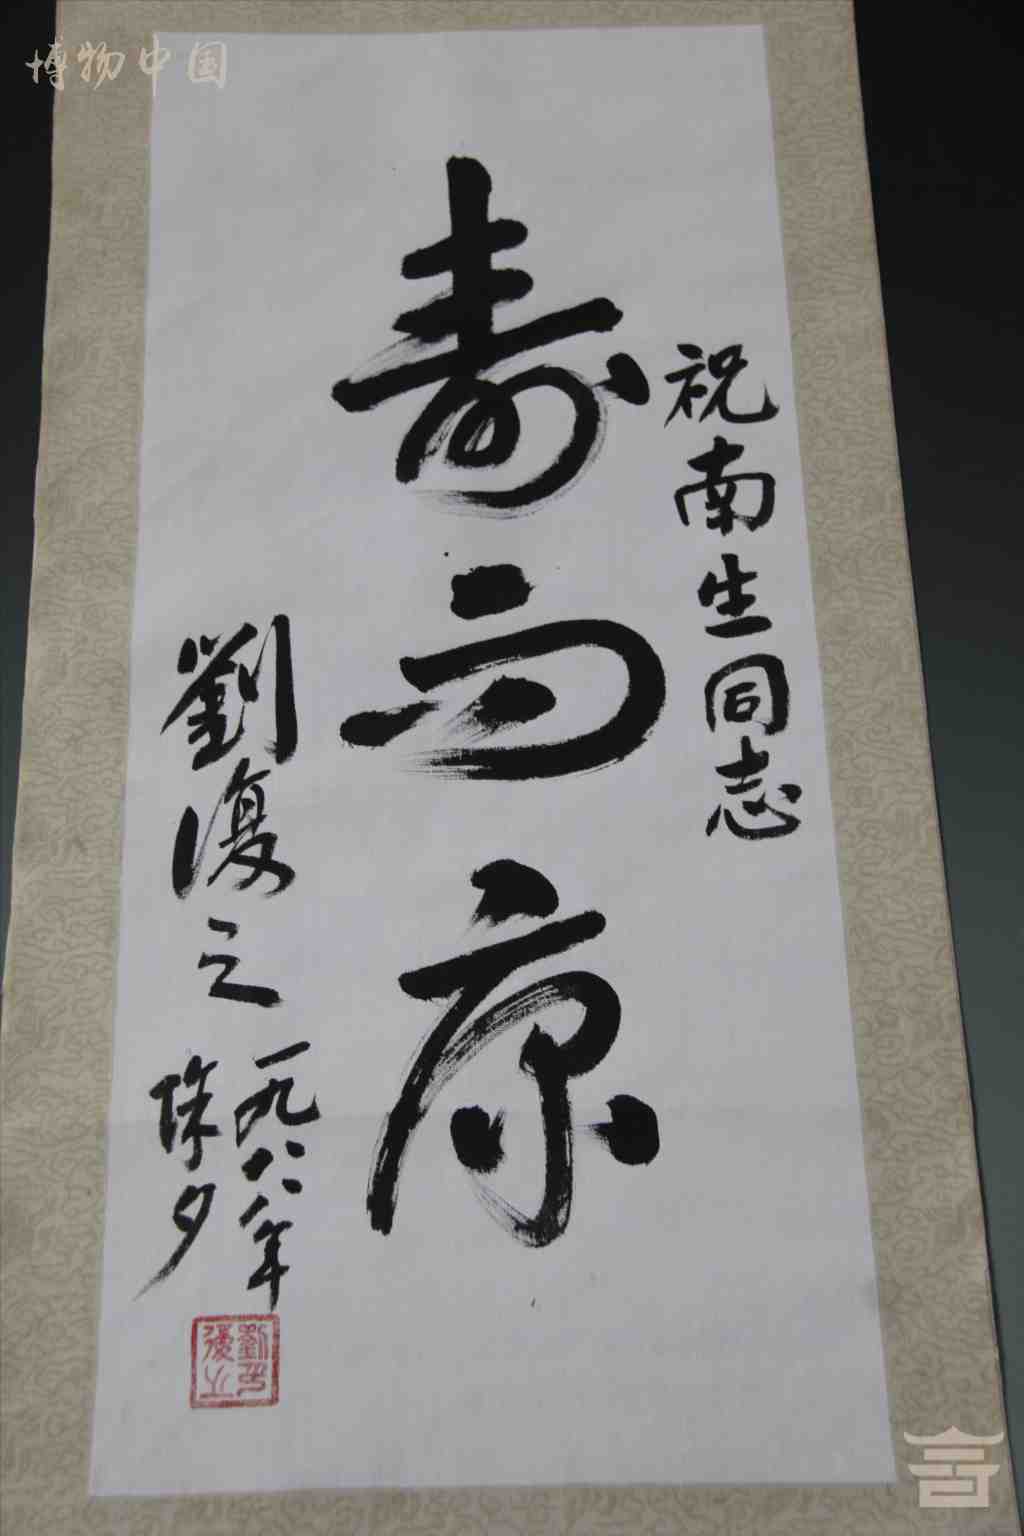 博物中国
祝南生同志
寿而康
劉復之
一九八八年
除夕
劉印
復之